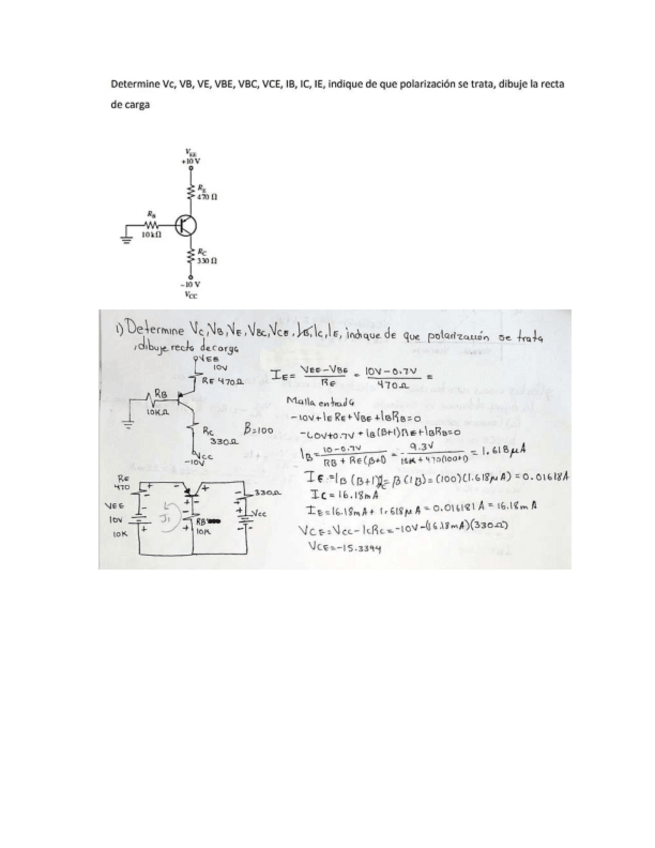 Determine Vc, VB, VE, VBE, VBC, VCE, IB, IC, IE, indique de que polarización se trata, dibuje la recta
de carga
VEE
+10 V
RE
470 Ω
RB
10 kΩ
RC
330 Ω
-10 V
VCC
1) Determine Vc, VB, VE, VBC, VCE, IB, Ic, IE, indique de que polarización se trata
, dibuje recta de carga
10V
RE 470Ω
RB
10KΩ
Rc
330Ω
β=100
Vcc
-10V
IE = VEE-VBE / RE = 10V-0.7V / 470Ω =
Malla entrada
-10V+IERE+VBE+IBRB=0
-10V+0.7V+IB(β+1)RE+IBRB=0
IB = 10-0.7V / RB + RE(β+1) = 9.3V / 10K+470(100+1) = 1.618μA
IE=IB(β+1) Ic=β(IB)=(100)(1.618μA)=0.01618A
IC=16.18mA
IE=16.18mA+1.618μA=0.016181A=16.18mA
VCE=Vcc-IcRc=-10V-(16.18mA)(330Ω)
VCE=-15.3394
RE
470
VEE
10V
10K
J1
RB
10K
330Ω
Vcc